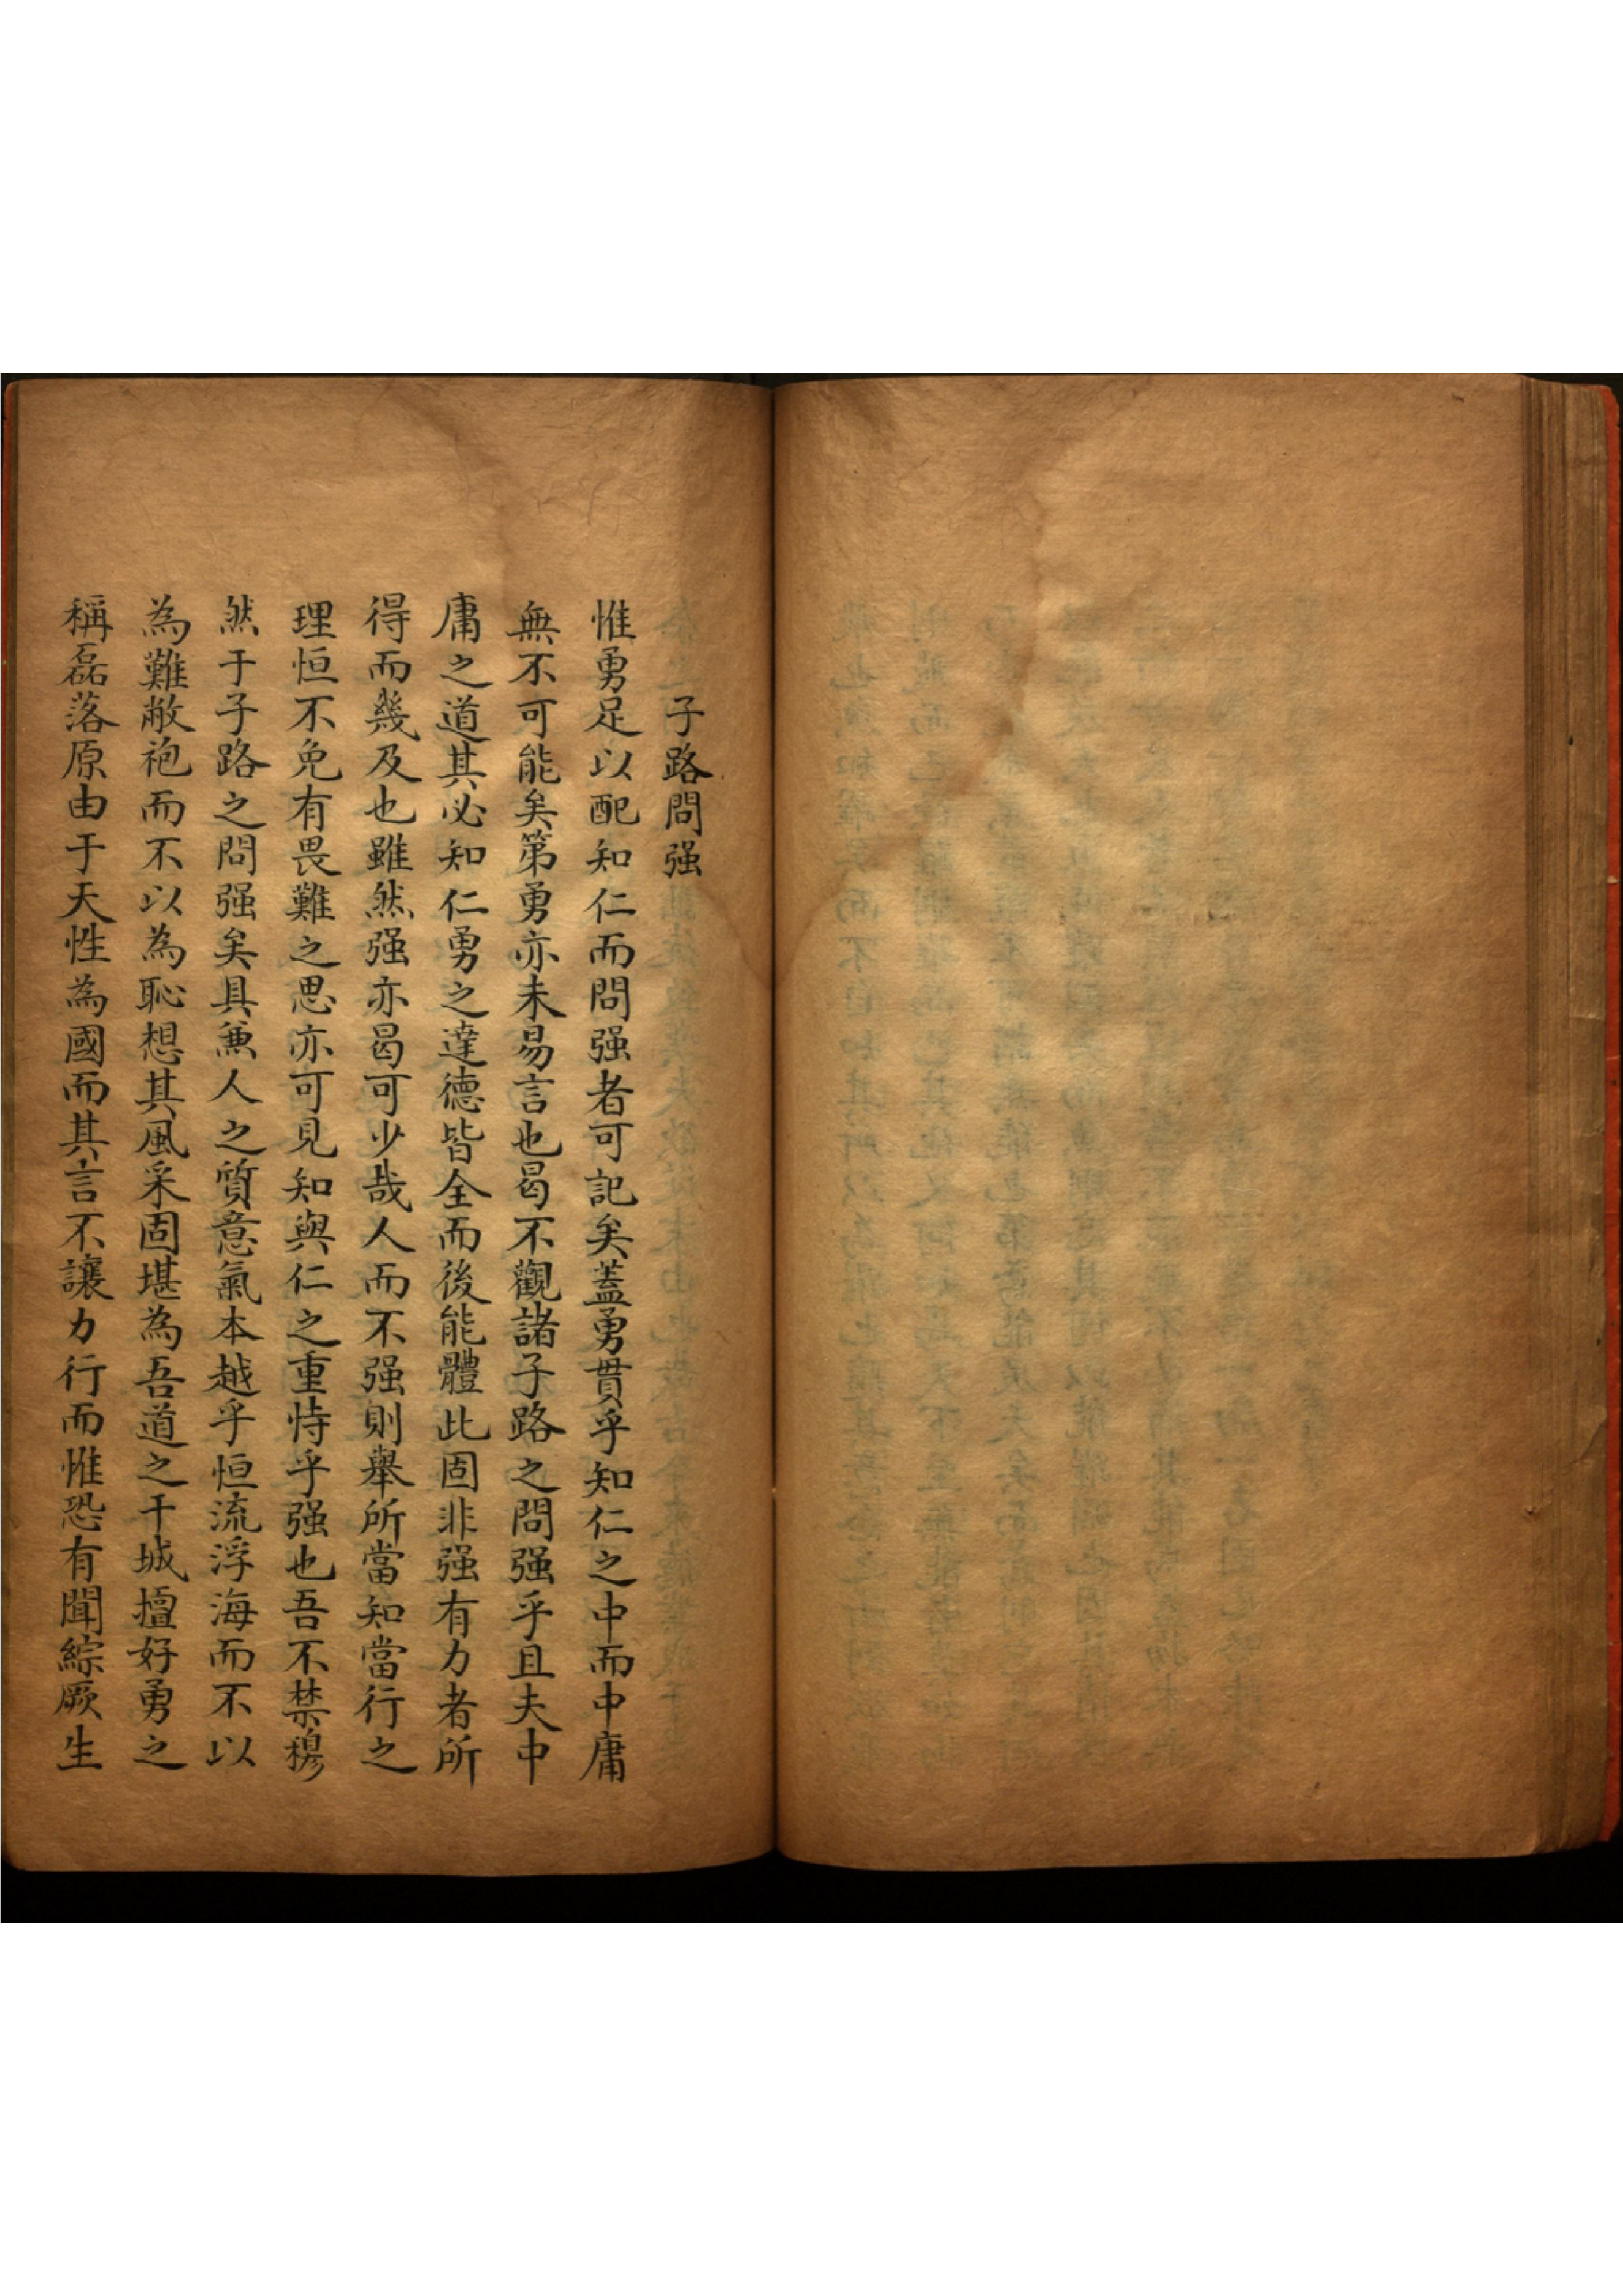 子路問强
惟勇足以配知仁而問强者可記矣蓋勇貫乎知仁之中而中庸
無不可能矣第勇亦未易言也曷不觀諸子路之問强乎且夫中
庸之道其必知仁勇之達德皆全而後能體此固非强有力者所
得而幾及也雖然强亦曷可少哉人而不强則舉所當知當行之
理恒不免有畏難之思亦可見知與仁之重恃乎强也吾不禁穆
然于子路之問强矣具兼人之質意氣本越乎恒流浮海而不以
為難敝袍而不以為恥想其風采固堪為吾道之干城擅好勇之
稱磊落原由于天性為國而其言不讓力行而惟恐有聞綜厥生